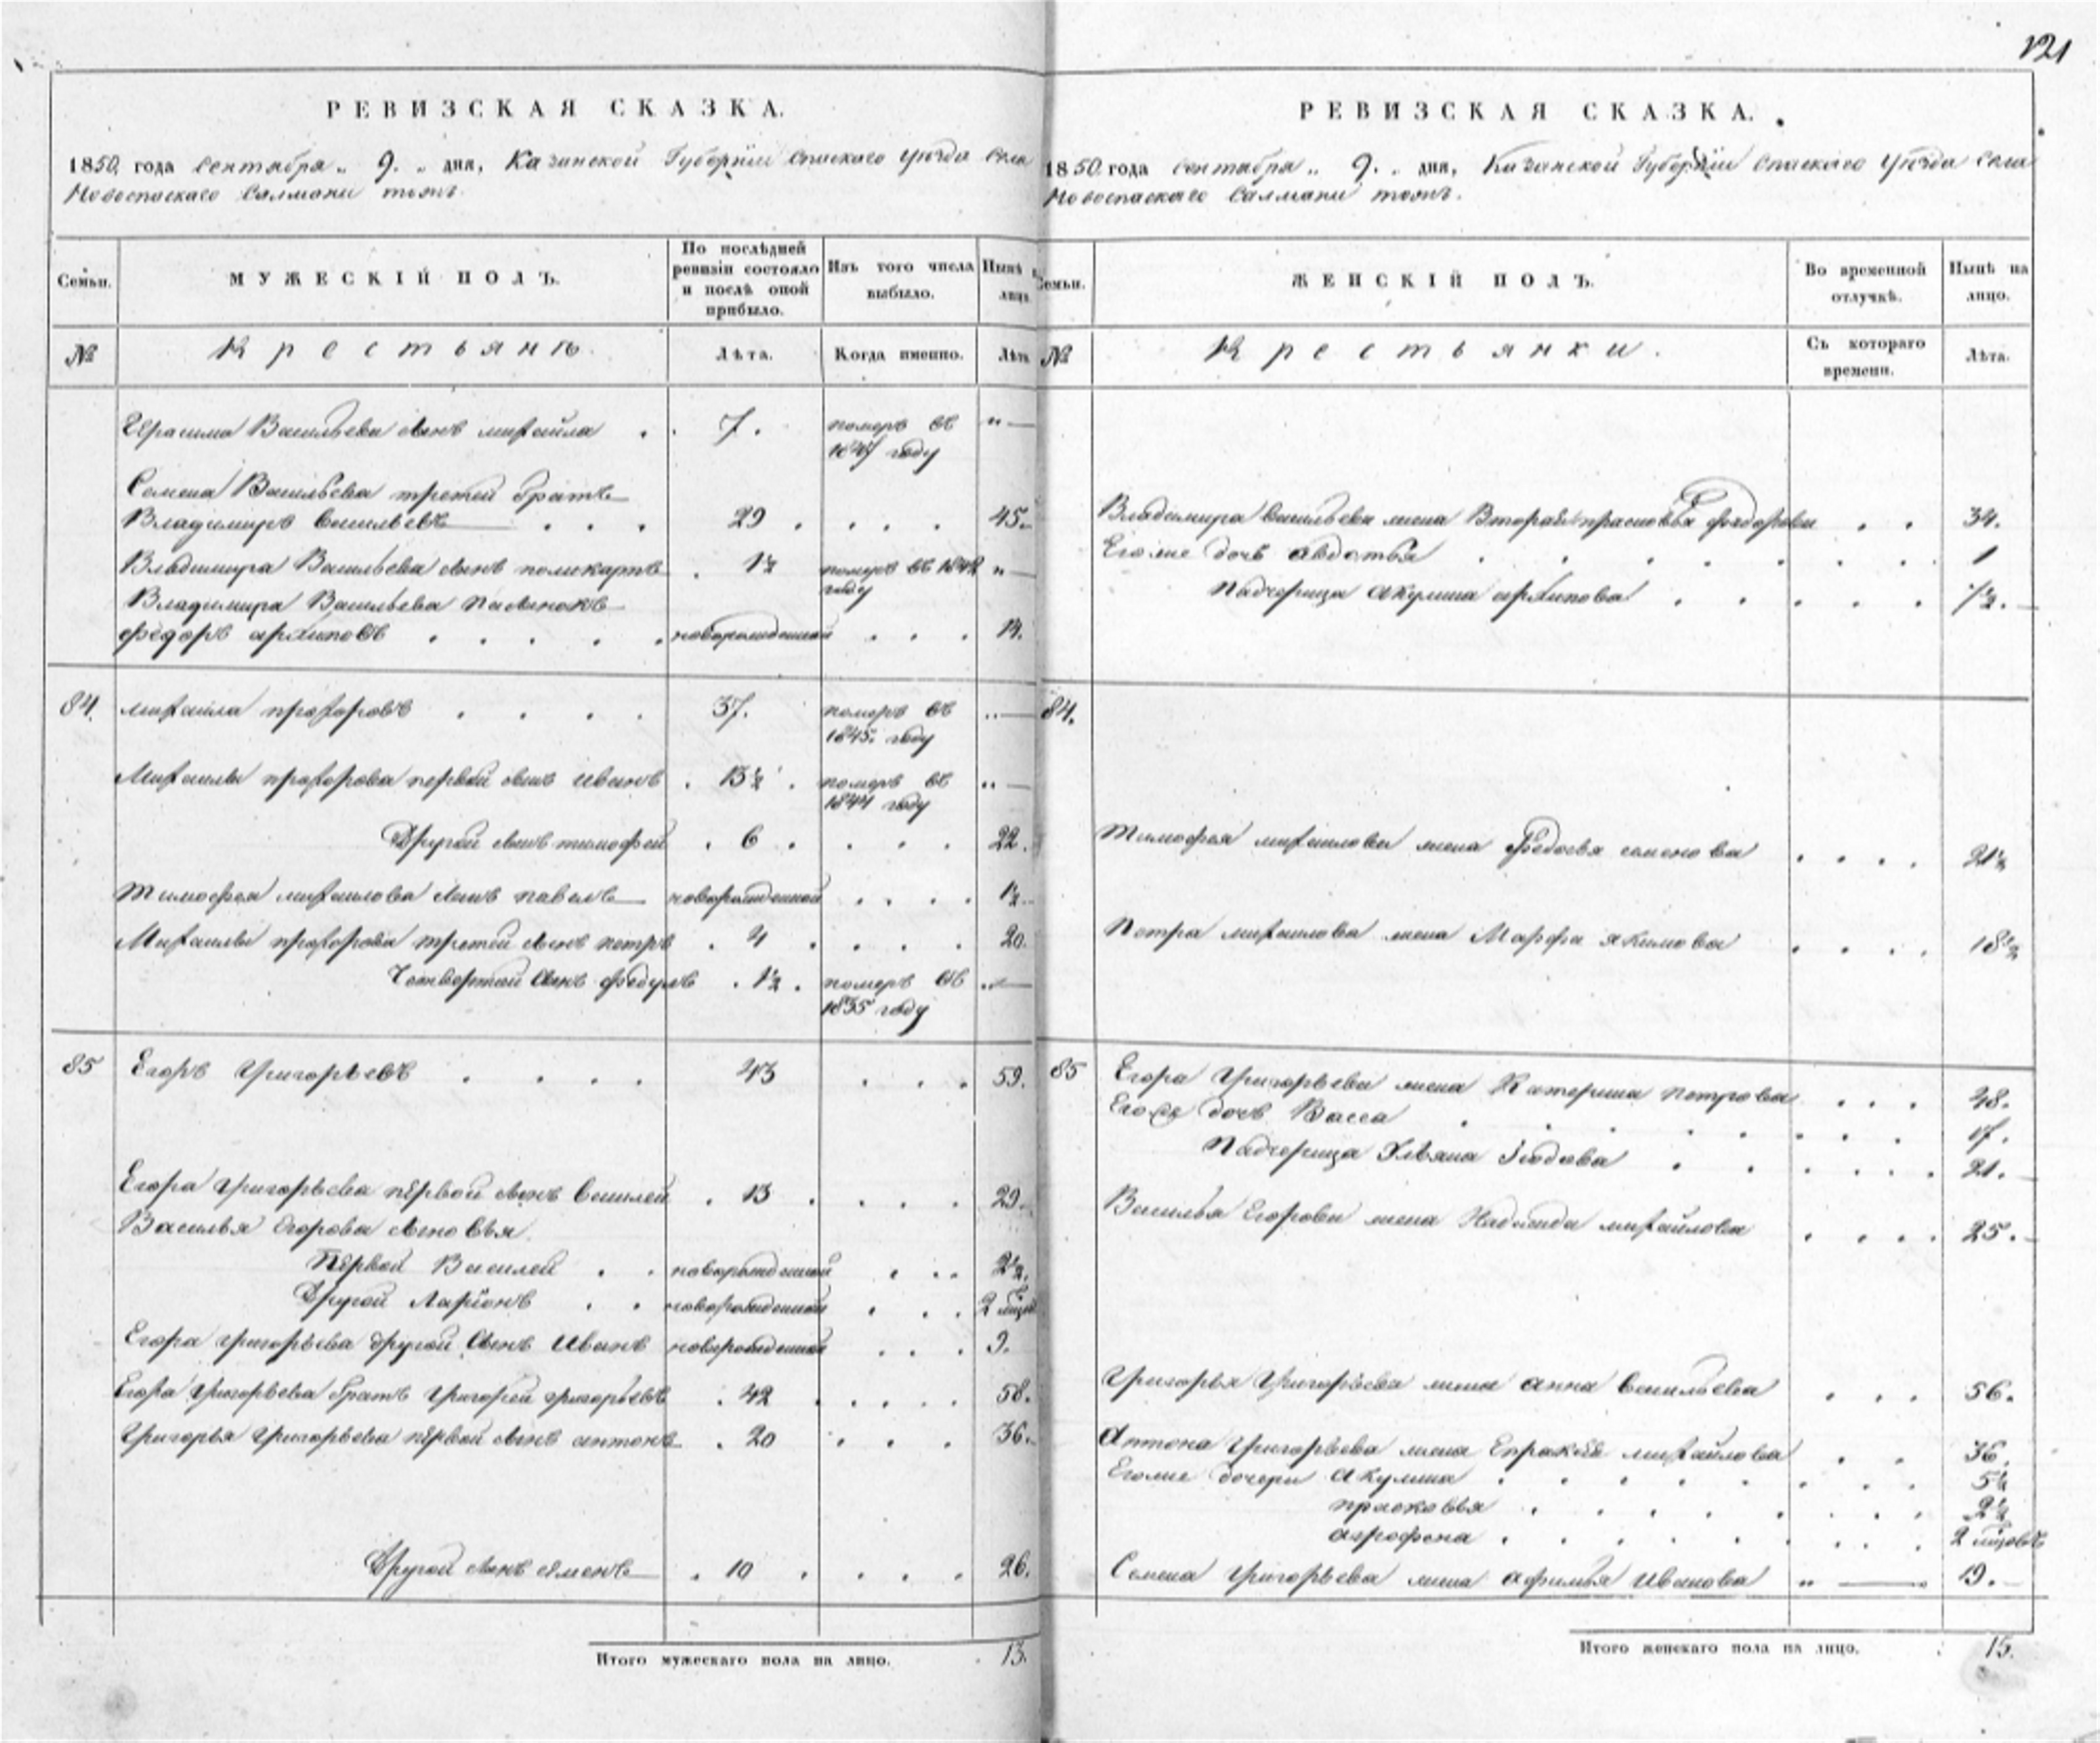 121
РЕВИЗСКАЯ СКАЗКА.
1850 года Сентября „ 9. „ дня, Казанской Губернiи Спаскаго уѣзда Села
Новоспаскаго Салмани тожъ.
Семьи.
МУЖЕСКІЙ ПОЛЪ.
По послѣдней ревизіи состояло и послѣ оной прибыло.
Изъ того числа выбыло.
Нынѣ на лицо.
№
Крестьянъ.
Лѣта.
Когда именно.
Лѣта
Герасима Васильева сынъ михайла 7. померъ въ „—
1847 году
Семена Васильева третей братъ
Владимиръ Васильевъ 29 45.
Владимира Васильева сынъ поликарпъ 1½ померъ въ 1842 „—
году
Владимира Васильева пасынокъ
Федоръ архиповъ новорожденной 14.
84. михаила прохоровъ 37. померъ въ „—
1845. году
Михаилы прохорова первой сынъ иванъ 13½ померъ въ „—
1844 году
Другой сынъ тимофей 6 22.
Тимофея михаилова сынъ павелъ новорожденной 1½
Михаилы прохорова третей сынъ петръ 4 20.
Четвертой сынъ Федулъ 1½ померъ въ „—
1835 году
85 Егоръ Григорьевъ 43 59.
Егора Григорьева первой сынъ Василей 13 29.
Василья Егорова сыновья
Первой Василей новорожденной 2½
Другой Ларiонъ новорожденной 2 мѣсяц
Егора Григорьева другой сынъ Иванъ новорожденной 9.
Егора Григорьева братъ Григорей Григорьевъ 42 58.
Григорья Григорьева первой сынъ антонъ 20 36.
Другой сынъ семенъ 10 26.
Итого мужескаго пола на лицо. 13.
РЕВИЗСКАЯ СКАЗКА.
1850 года Сентября „ 9. „ дня, Казанской Губернiи Спаскаго Уѣзда Села
Новоспаскаго Салмани тожъ.
Семьи.
ЖЕНСКІЙ ПОЛЪ.
Во временной отлучкѣ.
Нынѣ на лицо.
№
Крестьянки.
Съ котораго времени.
Лѣта.
Владимира Васильева жена Вторая прасковья Федорова 34.
Его же дочь авдотья 1
Падчерица акулина архипова
84.
Тимофея михаилова жена Федосья семенова 21½
Петра михаилова жена Марфа якимова 18½
85 Егора Григорьева жена Катерина петрова 48.
Его же дочь Васса 17.
Падчерица Ульяна 21.
Василья Егорова жена Надежда михайлова 25.
Григорья Григорьева жена анна Васильева 56.
Антона Григорьева жена Епраксiя михайлова 36
Его же дочери акулина
прасковья
агрофена 2 мѣсяцовъ
Семена Григорьева жена афимья Иванова „ — 19.
Итого женскаго пола на лицо. 15.